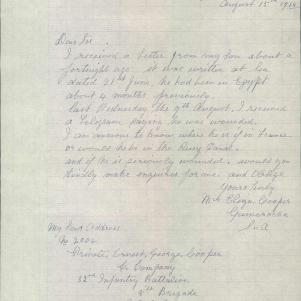 August 15th 1916
Dear Sir
I received a letter from my son about a
fortnight ago. it was written at Sea
dated 21st June, he had been in Egypt
about 4 months previously.
last Wednesday the 9th August. I received
a Telegram saying he was wounded.
I am anxious to know where he is if in France
or would he be in the Suez Canal.
and if he is seriously wounded. would you
kindly make enquiries for me. and Oblige
Yours truly
Mrs Eliza Cooper
Gumeracha
S.A
My Sons Address
No 2006
Private, Ernest, George Cooper
C. Company
32nd Infantry Battalion
8th Brigade